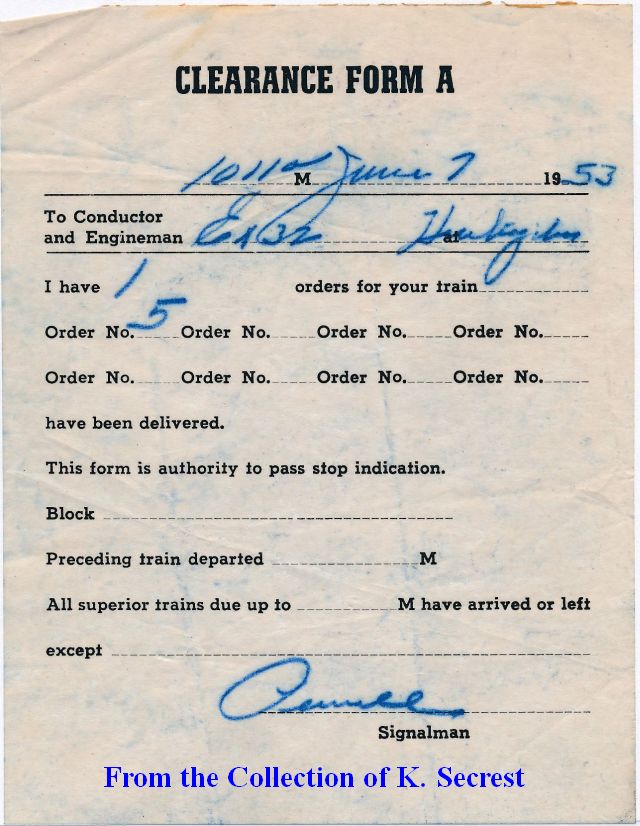 CLEARANCE FORM A
1011a M June 7 1953
To Conductor
and Engineman Ex 32 at
I have 1 orders for your train
Order No. 5 Order No. Order No. Order No.
Order No. Order No. Order No. Order No.
have been delivered.
This form is authority to pass stop indication.
Block
Preceding train departed M
All superior trains due up to M have arrived or left
except
Signalman
From the Collection of K. Secrest